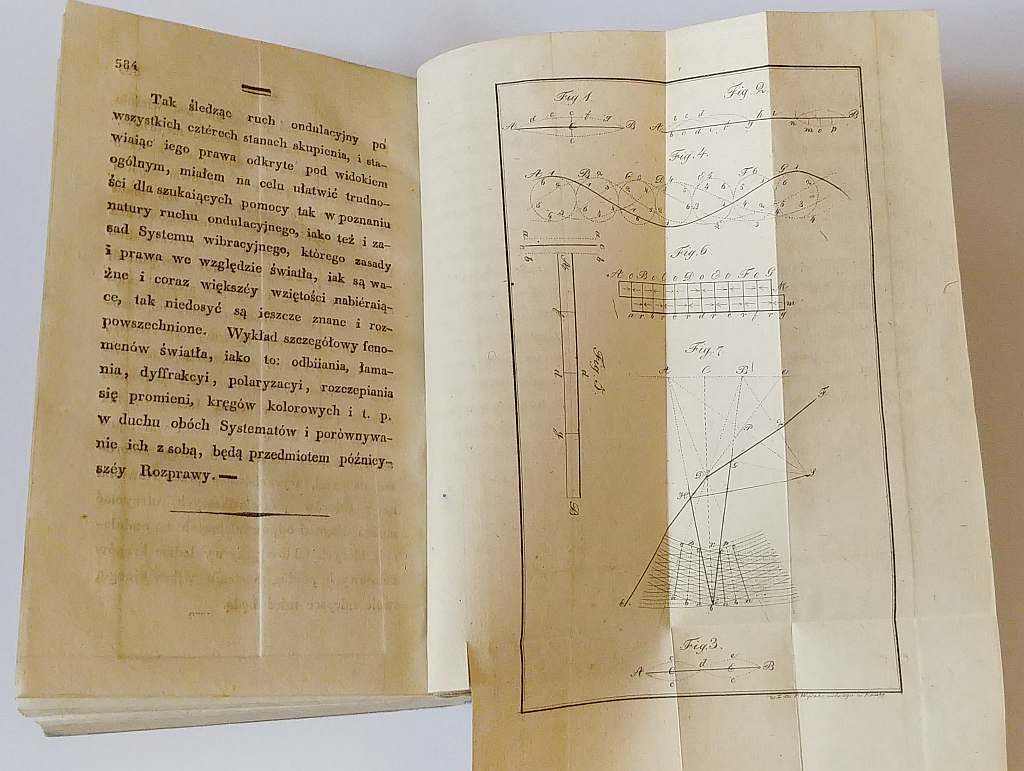 584
Tak śledząc ruch ondulacyjny po
wszystkich cztérech stanach skupienia, i sta-
wiaiąc iego prawa odkryte pod widokiem
ogólnym, miałem na celu ułatwić trudno-
ści dla szukaiących pomocy tak w poznaniu
natury ruchu ondulacyjnego, iako też i za-
sad Systemu wibracyjnego, którego zasady
i prawa we względzie światła, iak są wa-
żne i coraz większéy wziętości nabiéraią-
ce, tak niedosyć są ieszcze znane i roz-
powszechnione. Wykład szczegółowy feno-
menów światła, iako to: odbiiania, łama-
nia, dyffrakcyi, polaryzacyi, rozczepiania
się promieni, kręgów kolorowych i t. p.
w duchu obóch Systematów i porównywa-
nie ich z sobą, będą przedmiotem późniey-
széy Rozprawy.
Fig. 1.
A B
Fig. 2.
A B
Fig. 4.
Fig. 6
A o B o C o D o E o F o G
M
m
Fig. 5.
A
B
Fig. 7
A C B
F
P
D
S
H
Fig. 3.
A d B